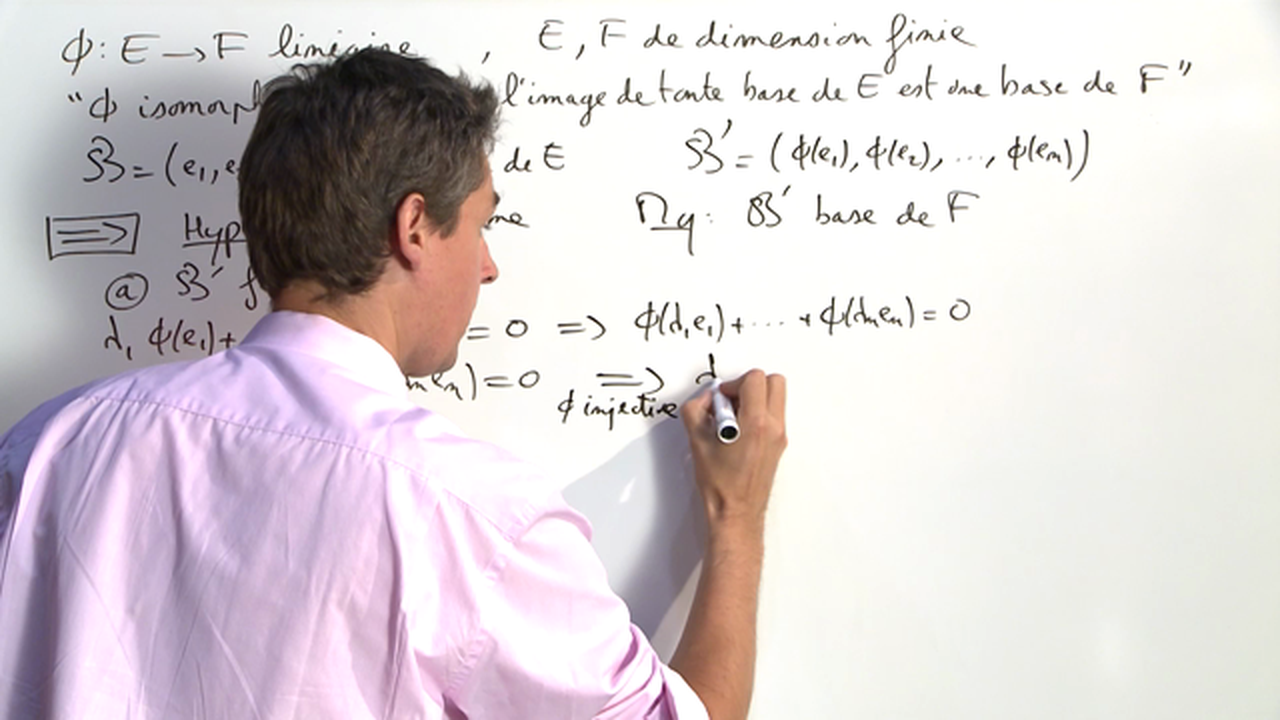 ϕ: E → F linéaire , E, F de dimension finie
"ϕ isomorp l'image de toute base de E est une base de F"
B = (e₁, e de E B' = (ϕ(e₁), ϕ(e₂), ..., ϕ(eₙ))
=> Hyp me Mq: B' base de F
ⓐ B' f
λ₁ ϕ(e₁)+ = 0 => ϕ(λ₁e₁)+ ... + ϕ(λₙeₙ) = 0
ₙeₙ) = 0 => λ
ϕ injective